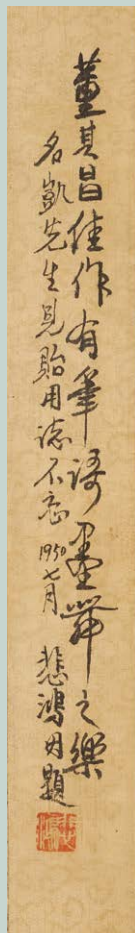 董其昌佳作有筆語墨舞之樂
名凱先生見貽用誌不忘
1950七月 悲鴻因題